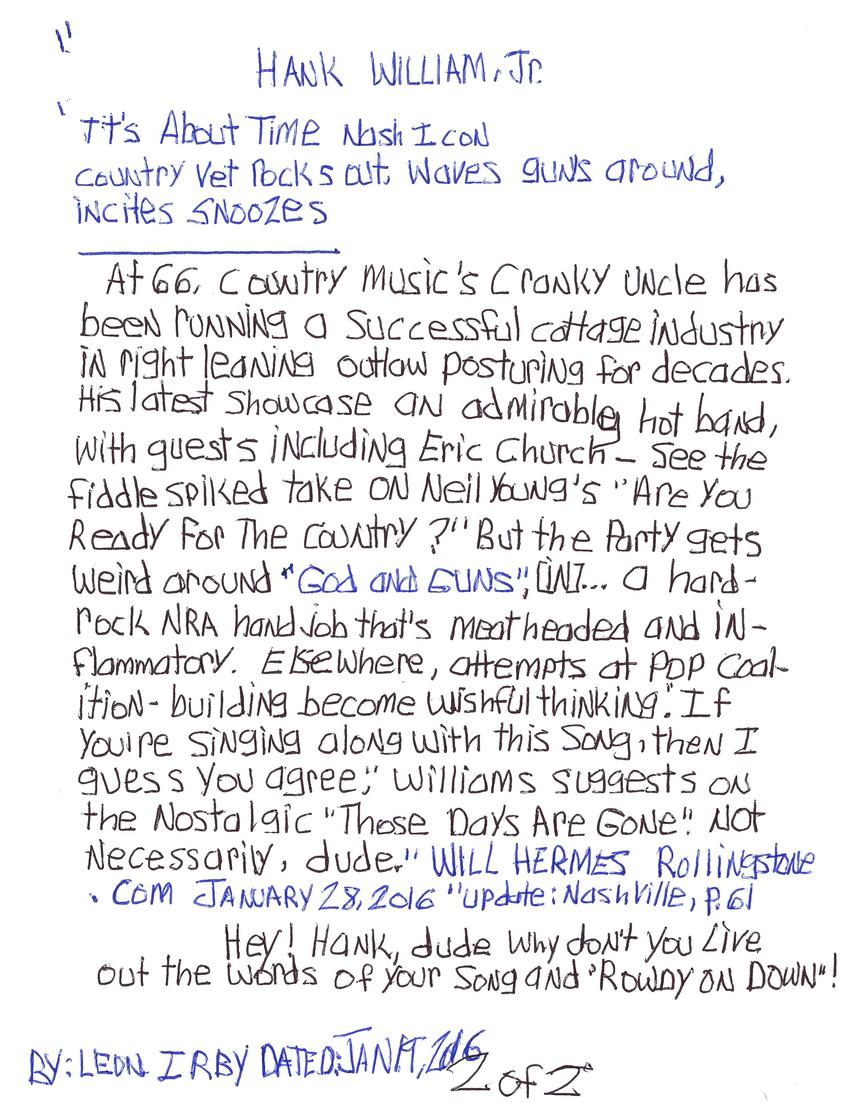 HANK WILLIAM, Jr.
It's About Time Nash Icon
country vet rocks out, waves guns around,
incites snoozes
At 66, country music's Cranky Uncle has
been running a successful cottage industry
in right leaning outlaw posturing for decades.
His latest showcase an admirably hot band,
with guests including Eric Church - see the
fiddle spiked take on Neil Young's "Are You
Ready For The Country?" But the Party gets
weird around "God and GUNS", [IN]... a hard-
rock NRA handjob that's meatheaded and in-
flammatory. Elsewhere, attempts at POP coal-
ition-building become wishful thinking." If
you're singing along with this song, then I
guess you agree;" Williams suggests on
the Nostalgic "Those Days Are Gone". Not
necessarily, dude." WILL HERMES Rollingstone
. COM JANUARY 28, 2016 "update: Nashville, p.61
Hey! Hank, dude why don't you Live
out the words of your song and "ROWDY ON DOWN"!
BY: LEON IRBY DATED: JAN 2016
2 of 2